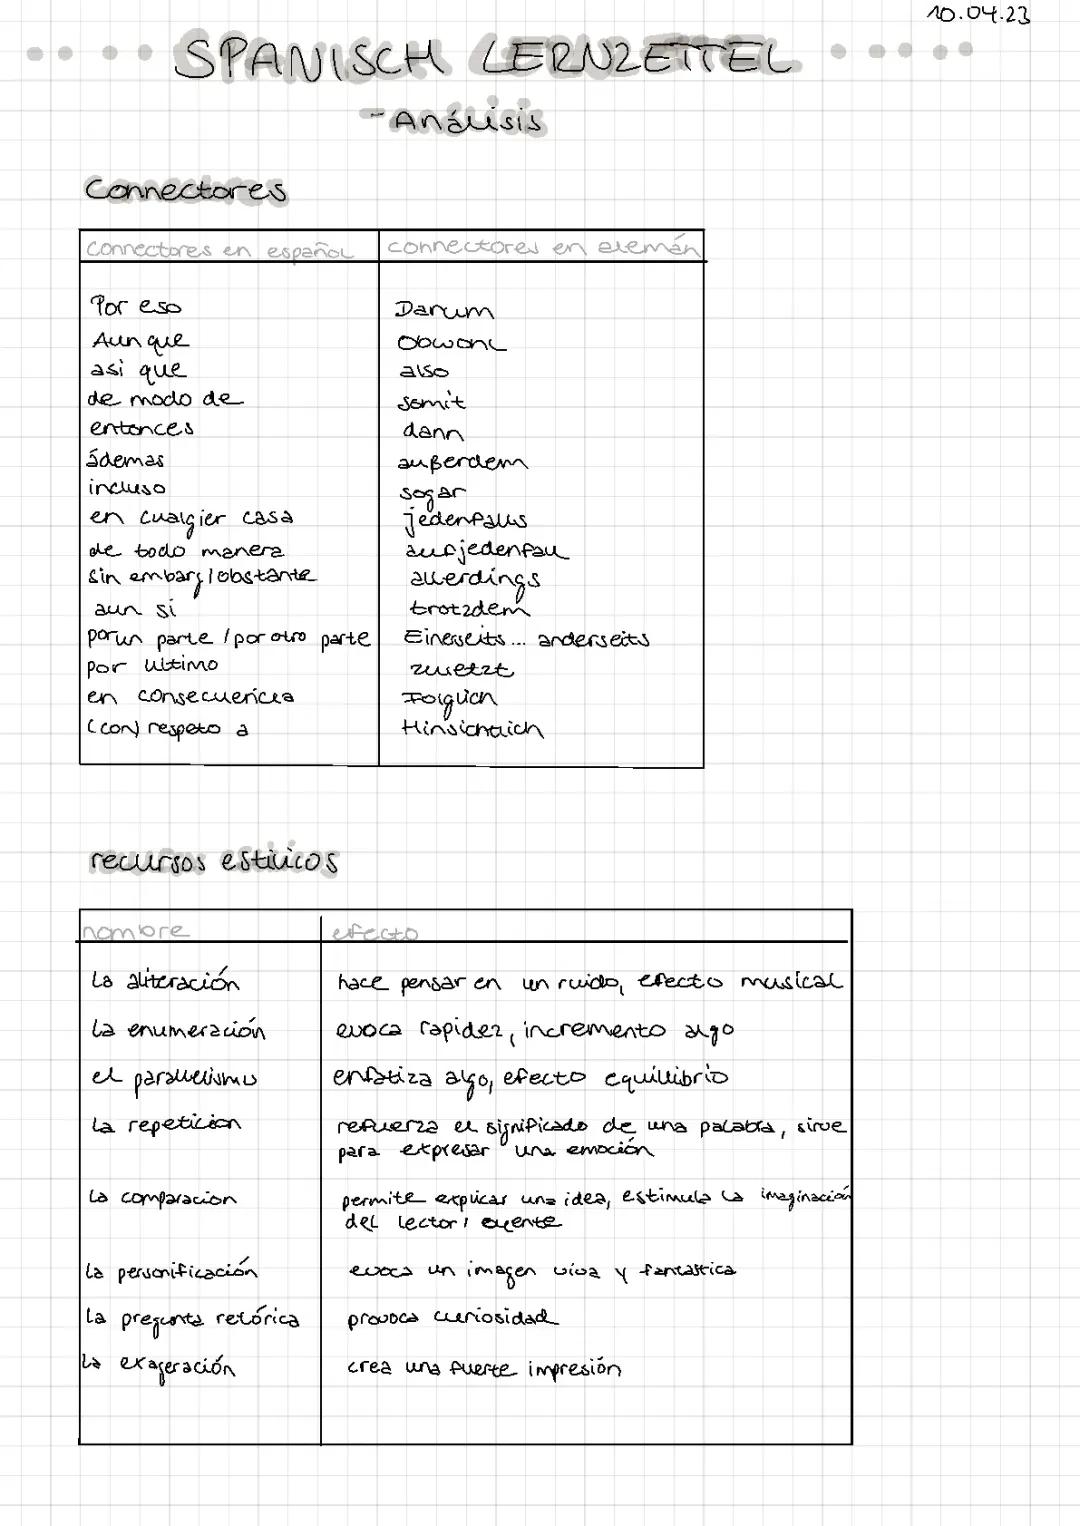 10.04.23
SPANISCH LERNZETTEL
- Análisis
Connectores
connectores en español connectores en alemán
Por eso Darum
Aunque Obwohl
asi que also
de modo de somit
entonces dann
ádemas außerdem
incluso sogar
en cualgier casa jedenfalls
de todo manera aufjedenfall
sin embarg/obstante allerdings
aun si trotzdem
porun parte / por otro parte Einerseits... anderseits
por ultimo zuletzt
en consecuencia Folglich
(con) respeto a Hinsichtlich
recursos estilicos
nombre efecto
La aliteración hace pensar en un ruido, efecto musical
La enumeración evoca rapidez, incremento algo
el parallelismo enfatiza algo, efecto equillibrio
La repeticion refuerza el significado de una palabra, sirve
para expresar una emoción
La comparacion permite explicar una idea, estimula la imaginación
del lector / oyente
La personificación evoca un imagen viva y fantastica
La pregunta retórica provoca curiosidad
La exageración crea una fuerte impresión